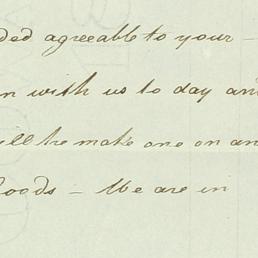 ded agreeable to your -
n with us to day an
ill he make one on an
Goods - We are in